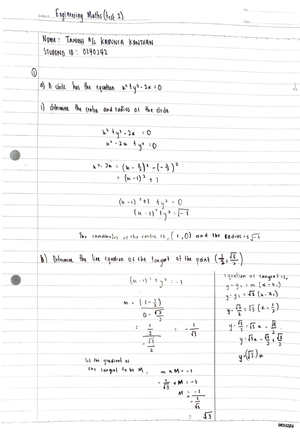 Engineering Maths (Test 2)
NAME : TANUSH A/L KARUNIA KANTHAN
STUDENT ID : 0340242
①
a) A circle has the equation x² + y² - 2x = 0
i) determine the centre and radius of the circle
x² + y² - 2x = 0
x² - 2x + y² = 0
x² - 2x = (x - 2/2)² - (-2/2)²
= (x-1)² + 1
(x-1)² + 1 + y² = 0
(x-1)² + y² = √-1
The coordinates of the centre is, (1,0) and the Radius = √-1
b) Determine the line equation of the tangent at the point (1/2, √3/2)
(x-1)² + y² = -1
m = (1 - 1/2) / (0 - √3/2)
= (1/2) / (-√3/2) = -1/√3
let the gradient of
the tangent to be M, m × M = -1
-1/√3 × M = -1
M = -1 / (-1/√3)
= √3
equation of tangent is,
y - y₁ = m (x - x₁)
y - y₁ = √3 (x - x₁)
y - √3/2 = √3 (x - 1/2)
y - √3/2 = √3 x - √3/2
y = √3 x - √3/2 + √3/2
y = (√3) x